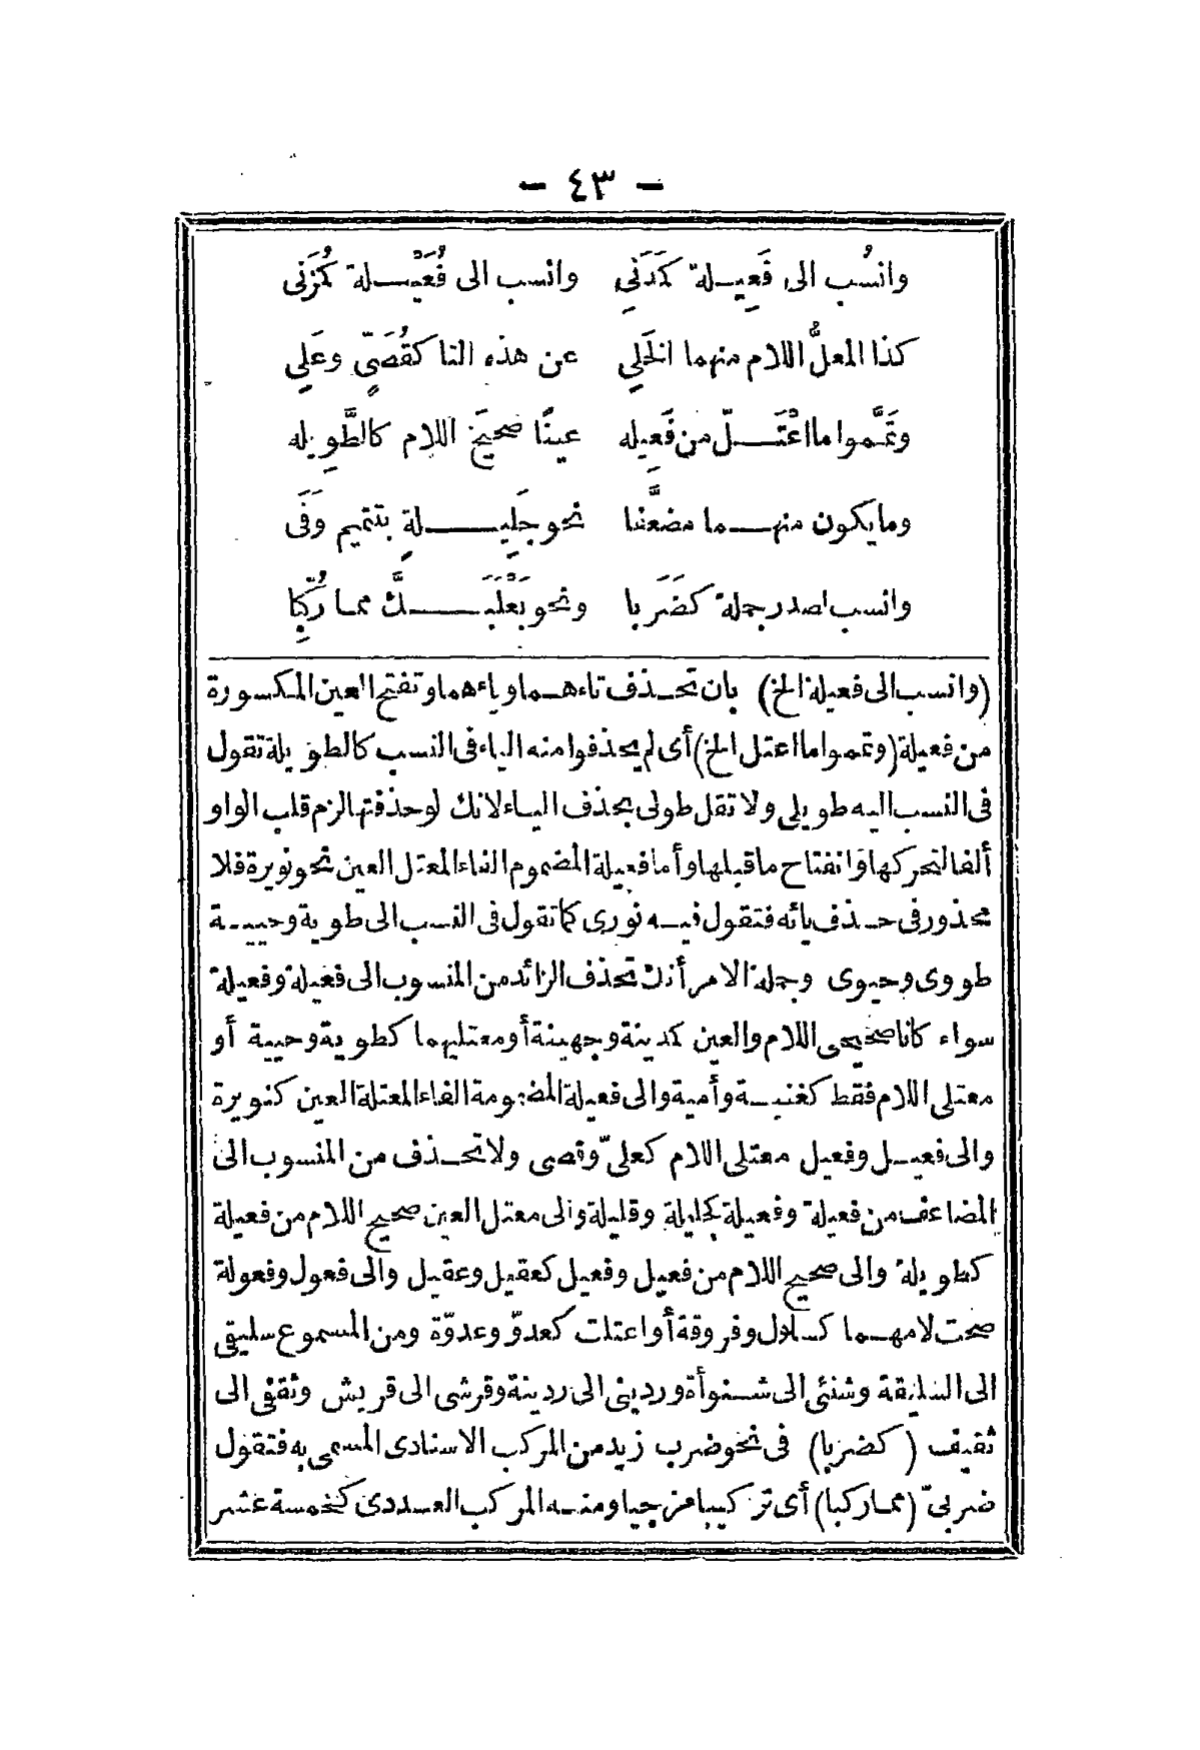 - ٤٣ -
وانسُب الى فَعِيلة كَمَدَنِي وانسب الى فُعَيْلة كمُزَنى
كذا المعلُّ اللام منهما الخَلِي عن هذه التا كقُصَىٍّ وعَلِي
وتَمَّموا ما اعْتَلّ من فَعِيله عينًا صحيحَ اللام كالطَّويله
وما يكون منهما مضعَّفا نحو جَلِيلةٍ بتتميم وَفَى
وانسب لصدر جملة كضَرَبا ونحو بَعْلَبَكَّ مما رُكِّبا
(وانسب الى فعيلة الخ) بان تحذف تاءهما وياءهما وتفتح العين المكسورة
من فعيلة (وتمموا ما اعتل الخ) أى لم يحذفوا منه الياء فى النسب كالطويلة تقول
فى النسب اليه طويلى ولا تقل طولى بحذف الياء لانك لو حذفتها لزم قلب الواو
ألفا لتحركها وانفتاح ما قبلها وأما فعيلة المضموم الفاء المعتل العين نحو نويرة فلا
محذور فى حذف يائه فتقول فيه نورى كما تقول فى النسب الى طوية وحيية
طووى وحيوى وجملة الامر أنك تحذف الزائد من المنسوب الى فعيلة وفعيلة
سواء كانا صحيحى اللام والعين كمدينة وجهينة أو معتليهما كطوية وحيية أو
معتلى اللام فقط كغنية وأمية والى فعيلة المضمومة الفاء المعتلة العين كنويرة
والى فعيل وفعيل معتلى اللام كعلىّ وقصى ولا تحذف من المنسوب الى
المضاعف من فعيلة وفعيلة كجليلة وقليلة والى معتل العين صحيح اللام من فعيلة
كطويلة والى صحيح اللام من فعيل وفعيل كعقيل وعقيل والى فعول وفعولة
صحت لامهما كسلول وفروقة أو اعتلت كعدوّ وعدوّة ومن المسموع سليقى
الى السليقة وشنئى الى شنوأة وردينى الى ردينة وقرشى الى قريش وثقفى الى
ثقيف (كضربا) فى نحو ضرب زيد من المركب الاسنادى المسمى به فتقول
ضربىّ (مما ركبا) أى تركيبا مزجيا ومنه المركب العددى كخمسة عشر